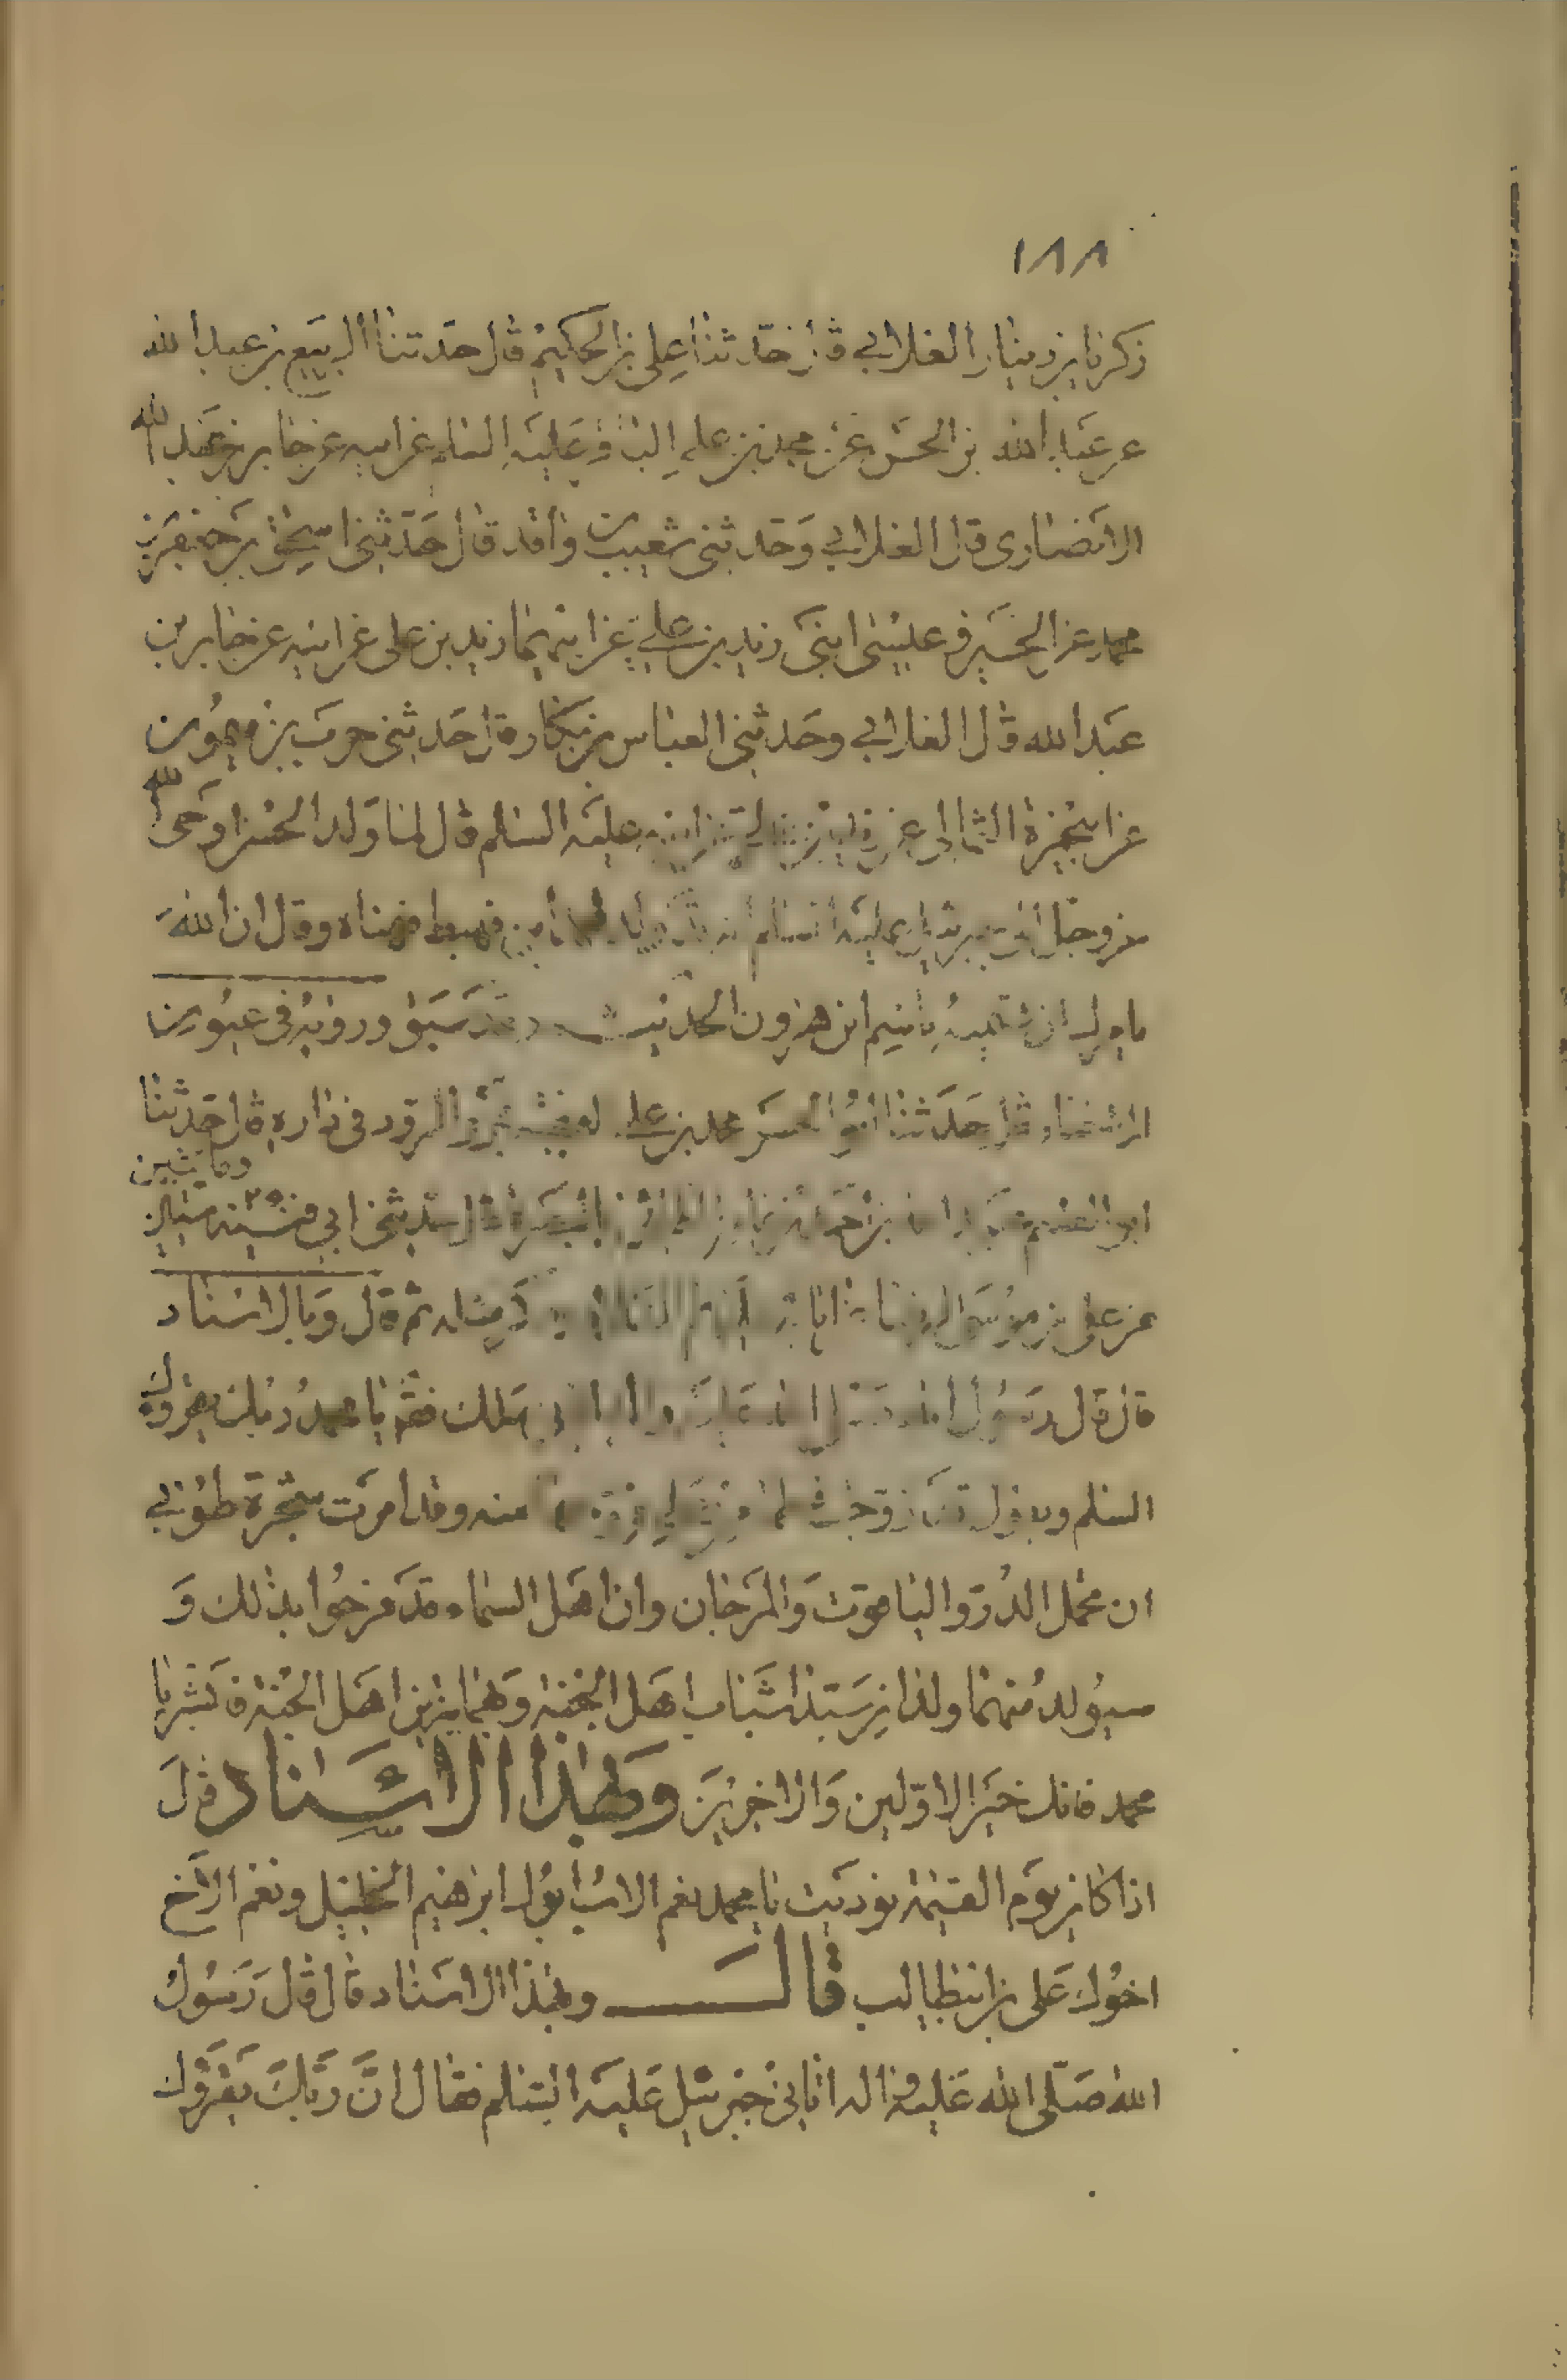 ١٨٨
زكريا بن دينار الغلابي قال حدثنا علي بن الحكيم قال حدثنا الربيع بن عبد الله
عن عبد الله بن الحسن عن محمد بن علي الباقر عليه السلم عن ابيه عن جابر بن عبد الله
الانصاري قال الغلابي وحدثني شعيب بن واقد قال حدثني اسحق بن جعفر بن
محمد عن الحسين وعيسى ابني زيد بن علي عن ابيهما زيد بن علي عن ابيه عن جابر بن
عبد الله قال الغلابي وحدثني العباس بن بكار قال حدثني حرب بن ميمون
عن ابي حمزة الثمالي عن زيد بن علي عن ابيه عليه السلم قال لما ولد الحسن اوحى الله
عز وجل الى جبريل عليه السلم فهبط فهناه وقال ان الله
يامرك ان تسميه باسم ابن هرون الحديث وقد سبق وروينه في عيون
الرضا قال حدثنا ابو الحسن محمد بن علي الفقيه بمرو الرود في داره قال حدثنا
ابو القسم عبد الله بن احمد بن عامر الطائي بالبصرة قال حدثني ابي في سنه ستين ومائتين
عن علي بن موسى الرضا ثم قال وبالاسناد
قال قال رسول الله صلى الله عليه واله اتاني ملك فقال يا محمد ربك يقرؤك
السلم ويقول قد زوجت فاطمة من علي فزوجها منه وقد امرت شجرة طوبى
ان تحمل الدر والياقوت والمرجان وان اهل السماء قد فرحوا بذلك و
سيولد منهما ولدان سيدا شباب اهل الجنة وبهما يزين اهل الجنة فابشر يا
محمد فانك خير الاولين والاخرين وبهذا الاسناد قال
اذا كان يوم القيمة نوديت يا محمد نعم الاب ابوك ابرهيم الخليل ونعم الاخ
اخوك علي بن ابيطالب قال وبهذا الاسناد قال قال رسول
الله صلى الله عليه واله اتاني جبرئيل عليه السلم فقال ان ربك يقرؤك